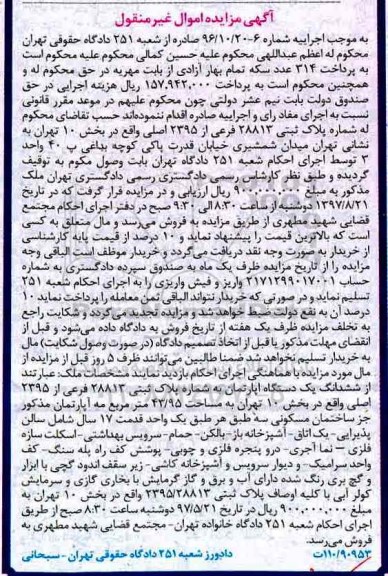 آگهی مزایده اموال غیر منقول
به موجب اجراییه شماره ۶-۹۶/۱۰/۲۰ صادره از شعبه ۲۵۱ دادگاه حقوقی تهران
محکوم له اعظم عبداللهی محکوم علیه حسین کمالی محکوم علیه محکوم است
به پرداخت ۳۱۴ عدد سکه تمام بهار آزادی از بابت مهریه در حق محکوم له و
همچنین محکوم است به پرداخت ۱۵۷,۹۴۲,۰۰۰ ریال هزینه اجرایی در حق
صندوق دولت بابت نیم عشر دولتی چون محکوم علیهم در موعد مقرر قانونی
نسبت به اجرای مفاد رای و اجراییه صادره اقدام ننموده‌اند حسب تقاضای محکوم
له شماره پلاک ثبتی ۲۸۸۱۳ فرعی از ۲۳۹۵ اصلی واقع در بخش ۱۰ تهران به
نشانی تهران میدان شمشیری خیابان قدرت پاکی کوچه بداغی پ ۴۰ واحد
۳ توسط اجرای احکام شعبه ۲۵۱ دادگاه تهران بابت وصول مکوم به توقیف
گردیده و طبق نظر کارشناس رسمی دادگستری رسمی دادگستری تهران ملک
مذکور به مبلغ ۹۰۰,۰۰۰,۰۰۰ ریال ارزیابی و در مزایده قرار گرفت که در تاریخ
۱۳۹۷/۸/۲۱ دوشنبه از ساعت ۸:۳۰ الی ۹:۳۰ صبح در دفتر اجرای احکام مجتمع
قضایی شهید مطهری از طریق مزایده به فروش می‌رسد و مال متعلق به کسی
است که بالاترین قیمت را پیشنهاد نماید و ۱۰ درصد از قیمت پایه کارشناسی
از خریدار به صورت وجه نقد دریافت می‌گردد و خریدار موظف است الباقی وجه
مزایده را از تاریخ مزایده ظرف یک ماه به صندوق سپرده دادگستری به شماره
حساب ۲۱۷۱۲۹۹۰۱۷۰۰۱ واریز و فیش واریزی را به اجرای احکام شعبه ۲۵۱
تسلیم نماید و در صورتی که خریدار نتواند الباقی ثمن معامله را پرداخت نماید ۱۰
درصد آن به نفع دولت ضبط خواهد شد و مزایده تجدید می‌گردد و شکایت راجع
به تخلف مزایده ظرف یک هفته از تاریخ فروش به دادگاه داده می‌شود و قبل از
انقضای مهلت مذکور یا قبل از اتخاذ تصمیم دادگاه (در صورت وصول شکایت) مال
به خریدار تسلیم نخواهد شد ضمنا طالبین می‌توانند ظرف ۵ روز قبل از مزایده از
مال مورد مزایده با هماهنگی اجرای احکام بازدید نمایند مشخصات ملک: عبارتند
از ششدانگ یک دستگاه اپارتمان به شماره پلاک ثبتی ۲۸۸۱۳ فرعی از ۲۳۹۵
اصلی واقع در بخش ۱۰ تهران به مساحت ۴۳/۹۵ متر مربع مه آپارتمان مذکور
جز ساختمان مسکونی سه طبق هر طبق یک واحد قدمت ۱۷ سال شامل سالن
پذیرایی- یک اتاق- آشپزخانه باز- بالکن- حمام- سرویس بهداشتی- اسکلت سازه
فلزی – نما آجری- درو پنجره فلزی و چوبی- پوشش کف راه پله سنگ- کف
واحد سرامیک- و دیوار سرویس و آشپزخانه کاشی- زیر سقف اندود گچی با ابزار
و گچ بری رنگ شده دارای آب و برق و گاز گرمایش با بخاری گازی و سرمایش
کولر آبی با کلیه اوصاف پلاک ثبتی ۲۳۹۵/۲۸۸۱۳ واقع در بخش ۱۰ تهران به
مبلغ ۹۰۰,۰۰۰,۰۰۰ ریال در تاریخ ۹۷/۵/۲۱ دوشنبه ساعت ۸:۳۰ صبح از طریق
اجرای احکام شعبه ۲۵۱ دادگاه خانواده تهران- مجتمع قضایی شهید مطهری به
فروش می‌رسد.
۱۱۰/۹۰۹۵۳ت دادورز شعبه ۲۵۱ دادگاه حقوقی تهران - سبحانی